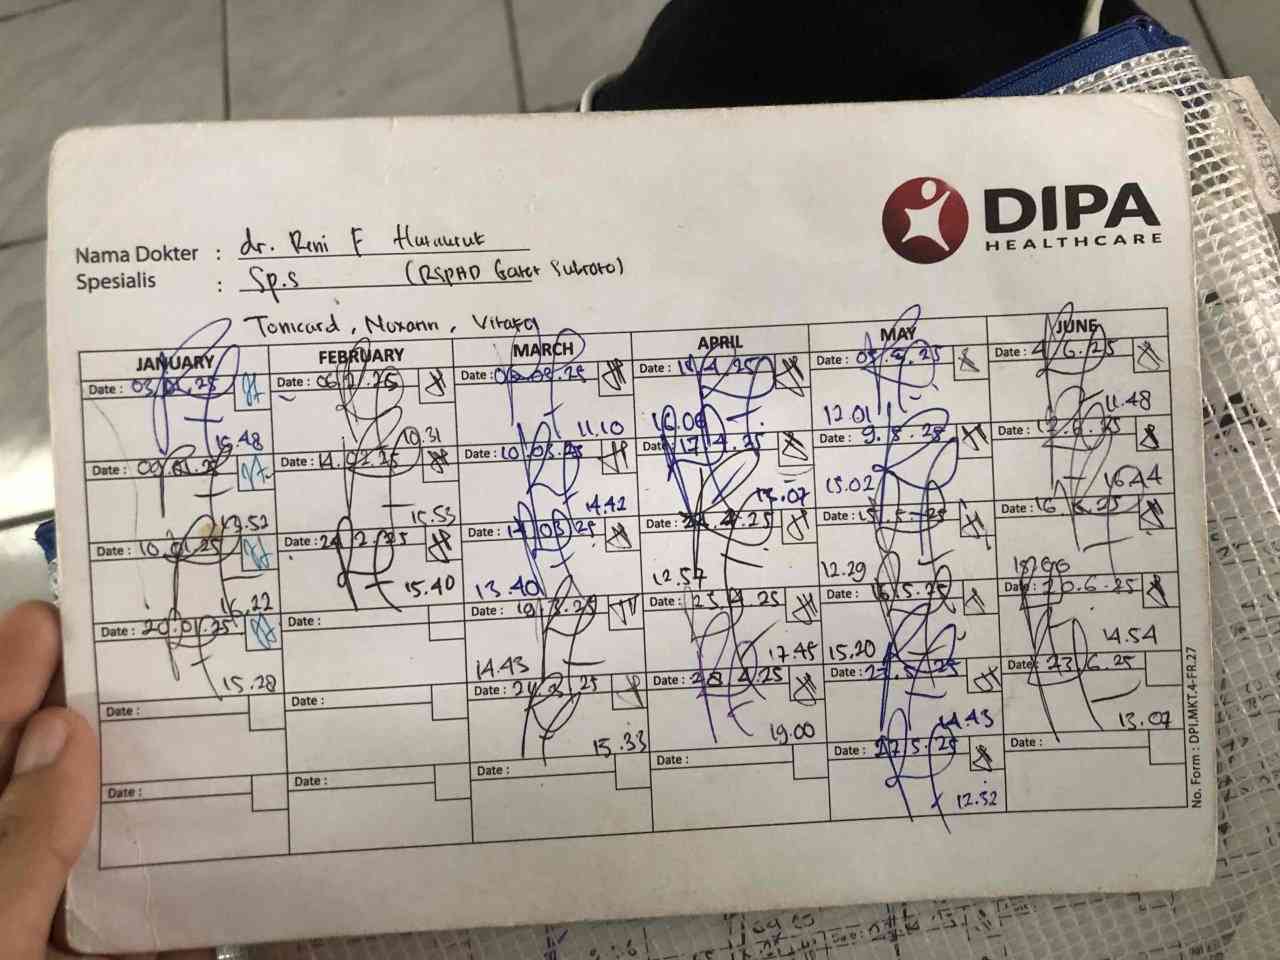 DIPA
HEALTHCARE
Nama Dokter : dr. Reni F Hutauruk
Spesialis : Sp.S (RSPAD Gatot Subroto)
Tonicard, Noxann,
JANUARY FEBRUARY MARCH APRIL MAY JUNE
Date : 03.01.25 Date : 06.2.25 Date : 03.25 Date : 4.25 Date : 05.25 Date : 4.6.25
15.48 10.31 11.10 16.06 12.01 11.48
Date : 09.01.25 Date : 14.02.25 Date : 10.03.25 Date : 17.4.25 Date : 9.5.25 Date : 12.6.25
13.52 15.53 14.42 13.07 15.02 16.44
Date : 10.01.25 Date : 24.2.25 Date : 17.03.25 Date : 24.4.25 Date : 15.5.25 Date : 16.6.25
16.22 15.40 13.40 12.57 12.29
Date : 20.01.25 Date : Date : 19.3.25 Date : 25.4.25 Date : 16.5.25 Date : 20.6.25
15.28 14.43 17.45 15.20 14.54
Date : Date : Date : 24.3.25 Date : 28.4.25 Date : 5.25 Date : 23.6.25
15.33 19.00 14.43 13.07
Date : Date : Date : Date : Date : 27.5.25 Date :
12.32
No. Form : DPI.MKT.4-FR.27